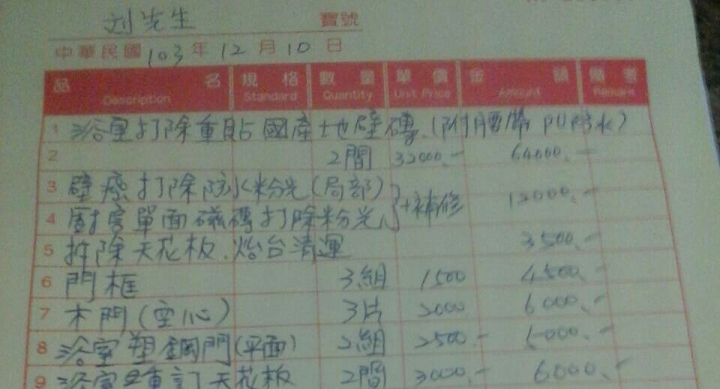 刘先生 寶號
中華民國103年12月10日
品名 規格 數量 單價 金額 備考
Description Standard Quantity Unit Price Amount Remark
1 浴室打除重貼國產地壁磚.(附腰帶PU防水)
2 2間 32000.- 64000.-
3 壁癌打除防水粉光(局部)
4 廚房單面磁磚打除粉光 }+補修 12000.-
5 拆除天花板.灶台清運 3500.-
6 門框 3組 1500 4500.-
7 木門(空心) 3片 2000 6000.-
8 浴室塑鋼門(平面) 2組 2500.- 5000.-
9 浴室重訂天花板 2間 3000.- 6000.-